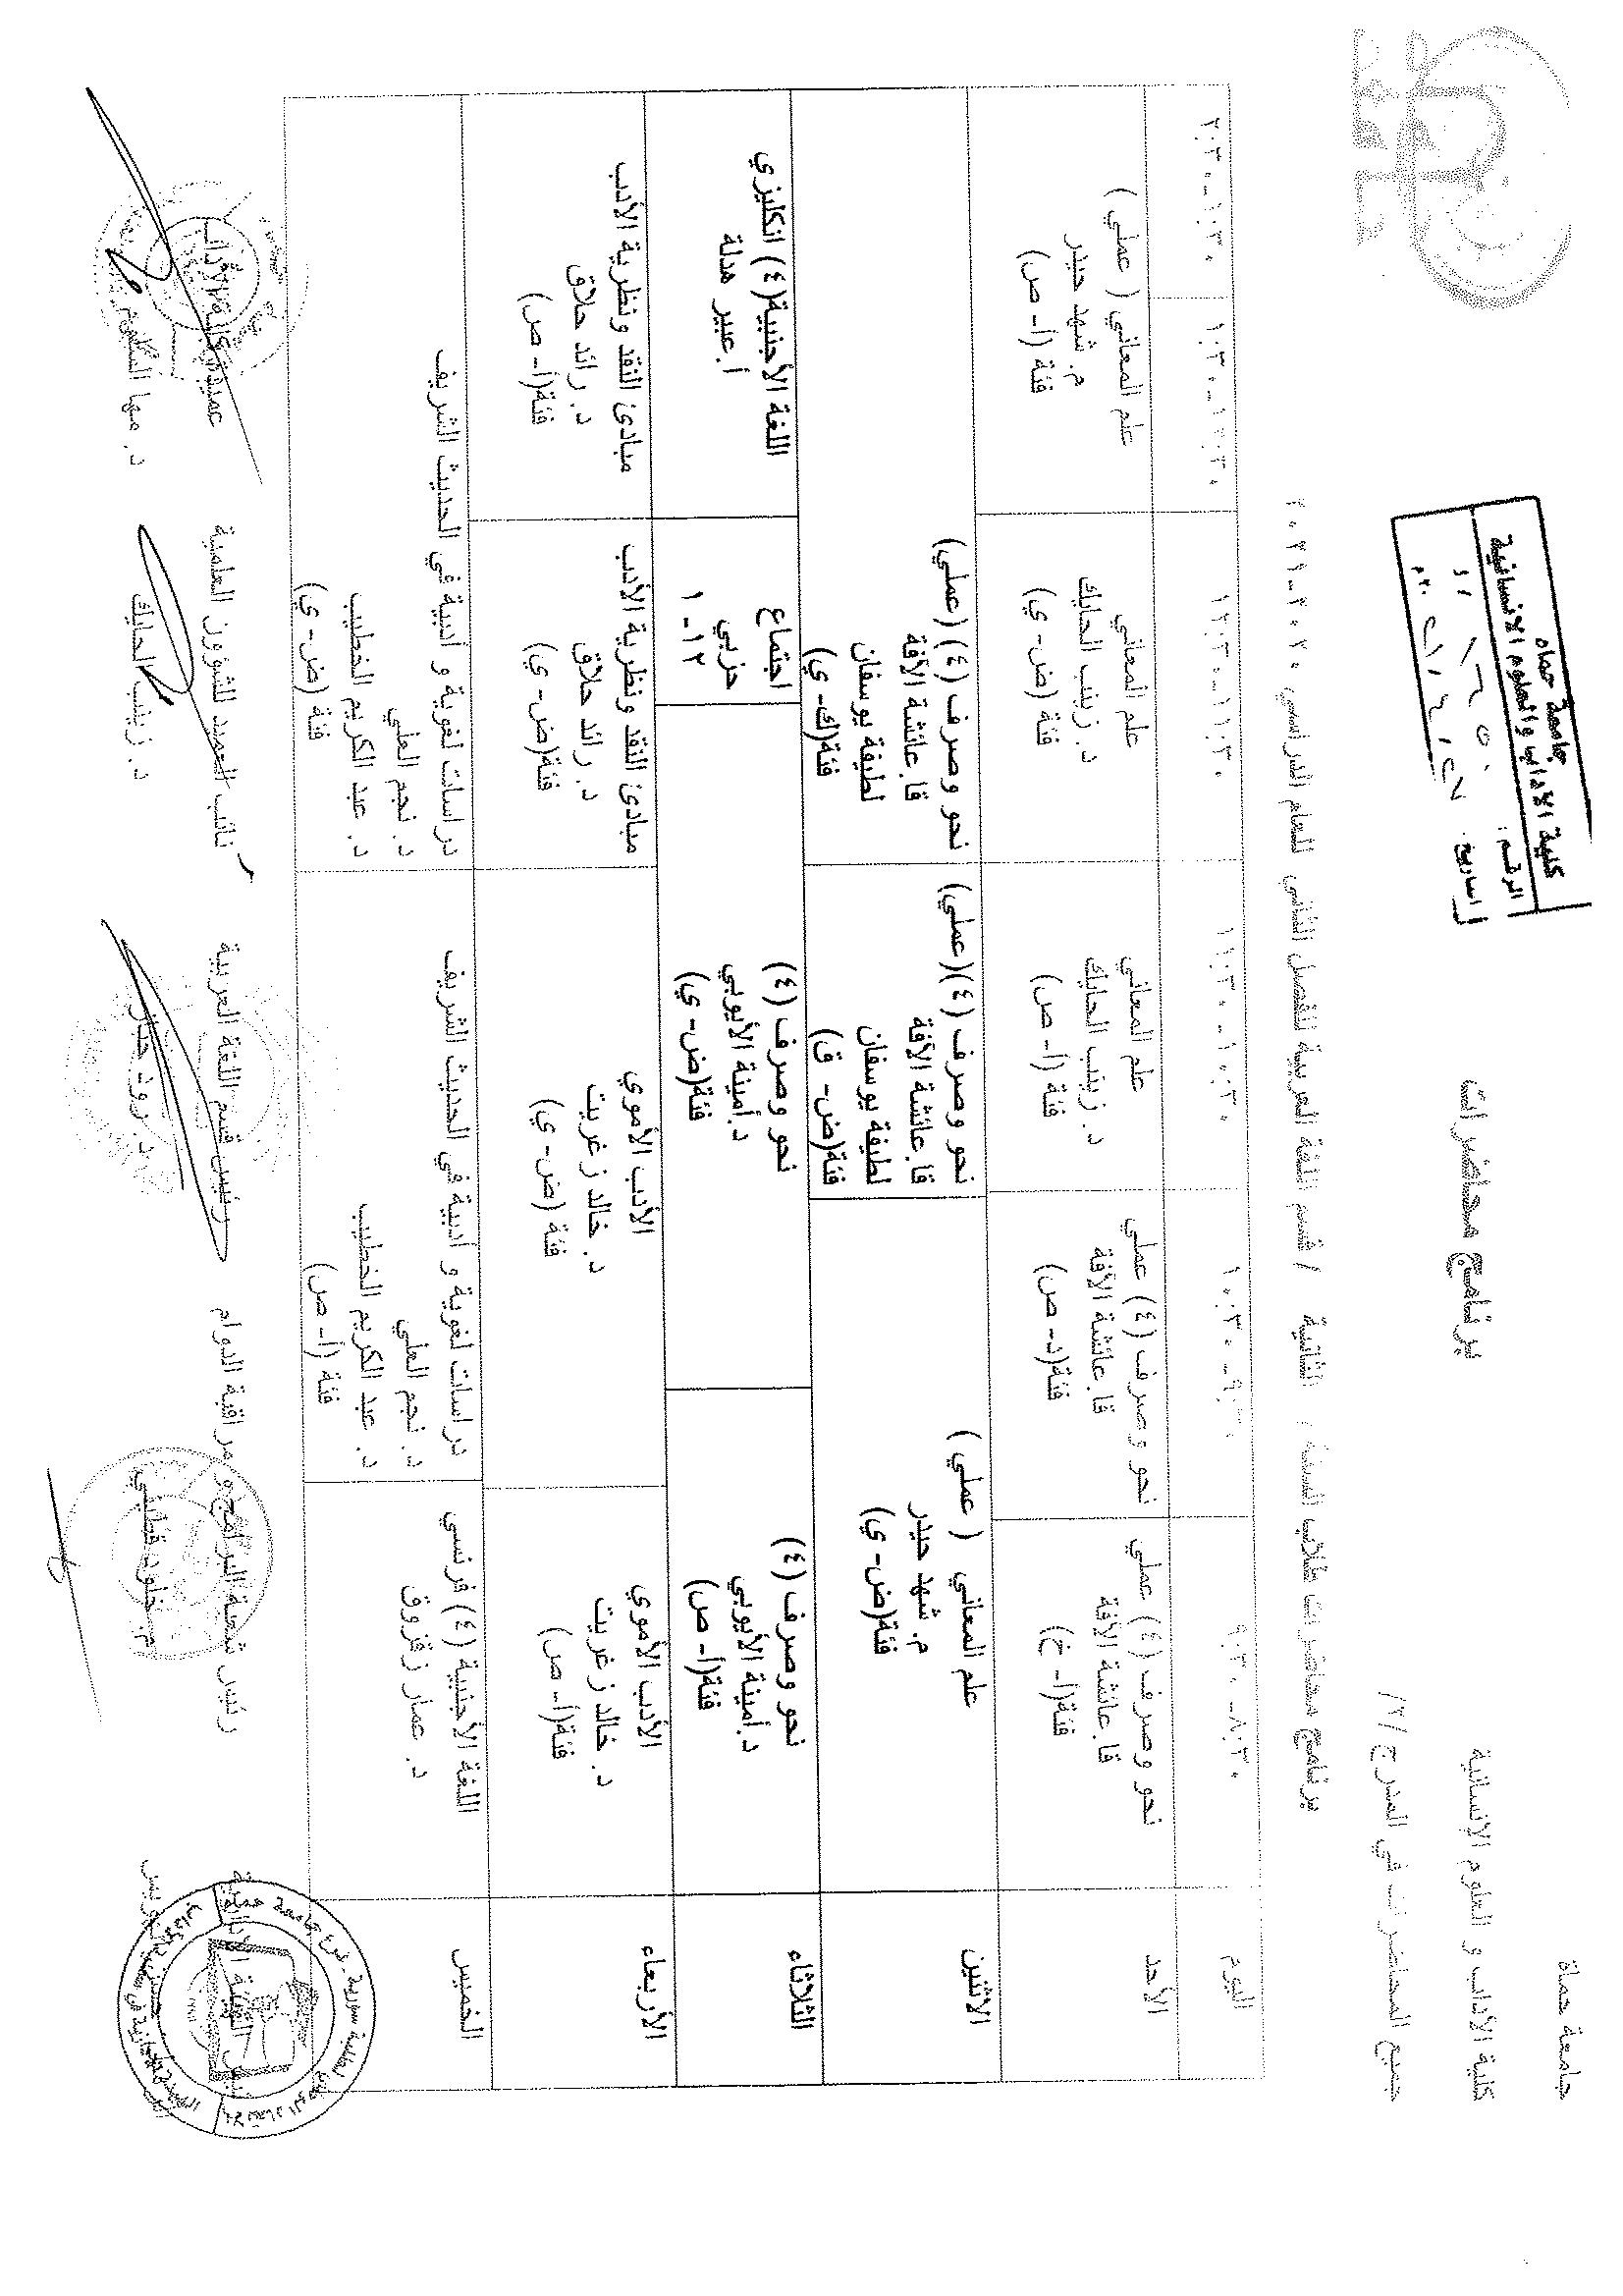 جامعة حماة
كلية الآداب و العلوم الإنسانية
برنامج محاضرات
جامعة حماه
كلية الاداب والعلوم الانسانية
الرقم:
جميع المحاضرات في المدرج /٢/
برنامج محاضرات طلاب السنة: الثانية / قسم اللغة العربية للفصل الثاني للعام الدراسي ٢٠٢٠-٢٠٢١
اليوم
٨:٣٠-٩:٣٠
٩:٣٠-١٠:٣٠
١٠:٣٠-١١:٣٠
١١:٣٠-١٢:٣٠
١٢:٣٠-١:٣٠
١:٣٠-٢:٣٠
الأحد
نحو وصرف (٤) عملي
قا.عائشة الآفة
فئة(أ- خ)
نحو وصرف (٤) عملي
قا.عائشة الآفة
فئة(د- ص)
علم المعاني
د. زينب الحايك
فئة (أ- ص)
علم المعاني
د. زينب الحايك
فئة (ض- ي)
علم المعاني ( عملي )
م. شهد حيدر
فئة (أ- ص)
الاثنين
علم المعاني ( عملي )
م. شهد حيدر
فئة(ض- ي)
نحو وصرف (٤)(عملي)
قا.عائشة الآفة
لطيفة يوسفان
فئة(ض- ق)
نحو وصرف (٤) (عملي)
قا.عائشة الآفة
لطيفة يوسفان
فئة(ك- ي)
الثلاثاء
نحو وصرف (٤)
د.أمينة الأيوبي
فئة(أ- ص)
نحو وصرف (٤)
د.أمينة الأيوبي
فئة(ض- ي)
اجتماع
حزبي
١٢-١
اللغة الأجنبية(٤) انكليزي
أ.عبير هدلة
الأربعاء
الأدب الأموي
د. خالد زغريت
فئة(أ- ص)
الأدب الأموي
د. خالد زغريت
فئة (ض- ي)
مبادئ النقد ونظرية الأدب
د. رائد حلاق
فئة(ض- ي)
مبادئ النقد ونظرية الأدب
د. رائد حلاق
فئة(أ- ص)
الخميس
اللغة الأجنبية (٤) فرنسي
د. عمار زقزوق
دراسات لغوية و أدبية في الحديث الشريف
د. نجم العلي
د. عبد الكريم الخطيب
فئة (أ- ص)
دراسات لغوية و أدبية في الحديث الشريف
د. نجم العلي
د. عبد الكريم الخطيب
فئة (ض- ي)
رئيس شعبة البرامج و مراقبة الدوام
رئيس قسم اللغة العربية
نائب العميد للشؤون العلمية
عميد كلية الآداب
د. زينب الحايك